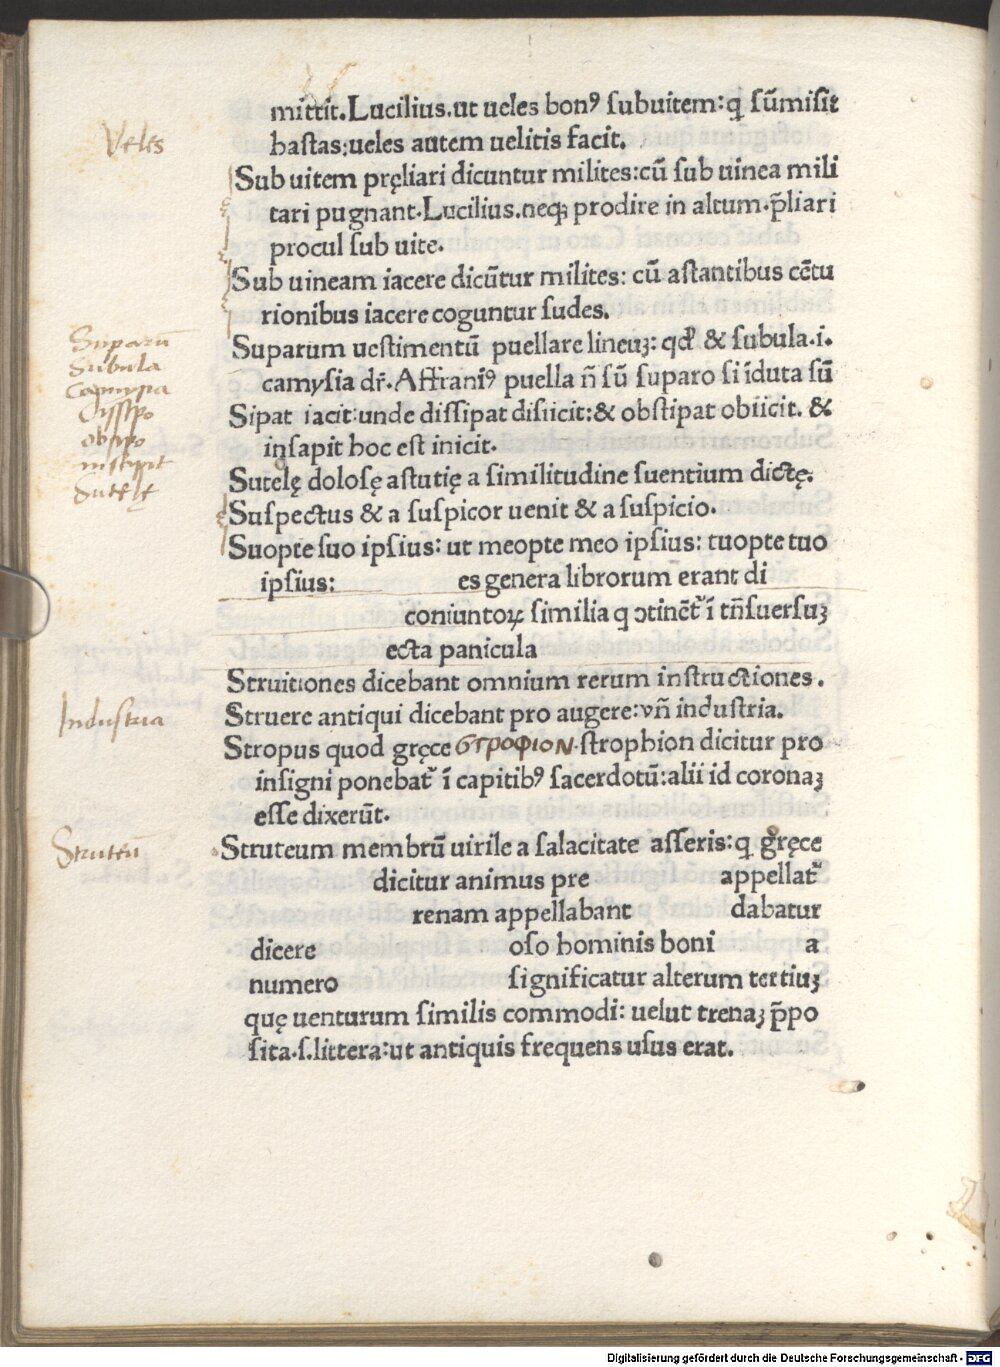 mittit.Lucilius.ut ueles bonꝰ subuitem:ꝙ sūmisit
hastas:ueles autem uelitis facit.
Veles
Sub uitem pręliari dicuntur milites:cū sub uinea mili
tari pugnant.Lucilius.neqꝫ prodire in altum.p̄liari
procul sub uite.
Sub uineam iacere dicūtur milites: cū astantibus cētu
rionibus iacere coguntur sudes.
Suparum uestimentū puellare lineuꝫ: qd̛ & subula.i.
camysia dr̄. Affranīꝰ puella ñ sū suparo si īduta sū
Suparū
Subula
Camysia
Sipat iacit:unde dissipat disiicit:& obstipat obiicit. &
insapit hoc est inicit.
Dyssipo
obsipo
insipit
Sutelę dolosę astutię a similitudine suentium dictę.
Sutelę
Suspectus & a suspicor uenit & a suspicio.
Suopte suo ipsius: ut meopte meo ipsius: tuopte tuo
ipsius: es genera librorum erant di
coniuntoꝝ similia q ↄtinēt᷑ ī tñsuersuꝫ
ecta panicula
Struitiones dicebant omnium rerum instructiones.
Struere antiqui dicebant pro augere:vñ industria.
Industria
Stropus quod gręce στροφιον.strophion dicitur pro
insigni ponebat᷑ ī capitibꝰ sacerdotū:alii id coronaꝫ
esse dixerūt.
Struteum membrū uirile a salacitate asseris:ꝙ gręce
Struteū
dicitur animus pre appellat᷑
renam appellabant dabatur
dicere oso hominis boni a
numero significatur alterum tertiuꝫ
quę uenturum similis commodi: uelut trenaꝫ p̄po
sita.s.littera:ut antiquis frequens usus erat.
Digitalisierung gefördert durch die Deutsche Forschungsgemeinschaft - DFG